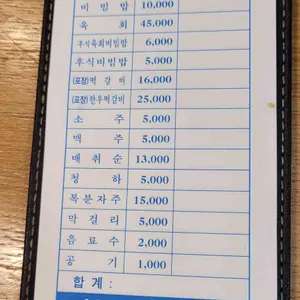 비 빔 밥 10,000
육 회 45,000
후식육회비빔밥 6,000
후식비빔밥 5,000
(포장)떡 갈 비 16,000
(포장)한우떡갈비 25,000
소 주 5,000
맥 주 5,000
매 취 순 13,000
청 하 5,000
복 분 자 주 15,000
막 걸 리 5,000
음 료 수 2,000
공 기 1,000
합 계 :